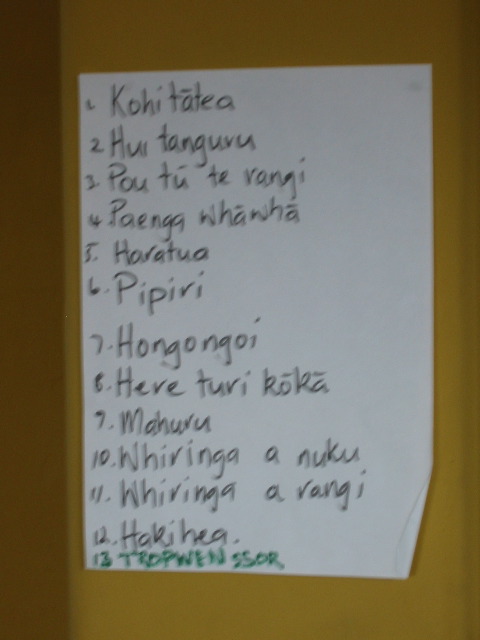 1. Kohi tātea
2 Hui tanguru
3. Pou tū te rangi
4. Paenga whāwhā
5. Haratua
6. Pipiri
7. Hongongoi
8. Here turi kōkā
9. Mahuru
10. Whiringa a nuku
11. Whiringa a rangi
12. Hakihea.
13 TROPWEN SSOR